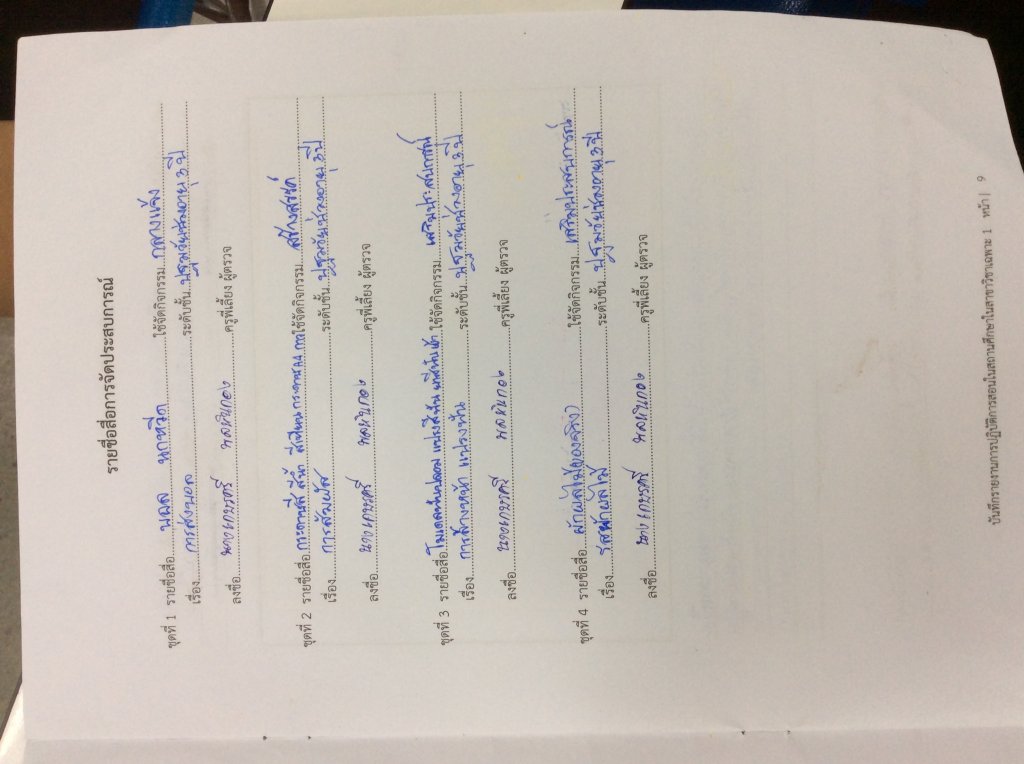 รายชื่อสื่อการจัดประสบการณ์
ชุดที่ 1 รายชื่อสื่อ บอล นกหวีด ใช้จัดกิจกรรม กลางแจ้ง
เรื่อง การส่งบอล ระดับชั้น ปฐมวัยช่วงอายุ 3 ปี
ลงชื่อ นางเกษรศรี ครูพี่เลี้ยง ผู้ตรวจ
ชุดที่ 2 รายชื่อสื่อ กระดาษสี สีน้ำ สีเทียน กระดาษA4 กาว ใช้จัดกิจกรรม สร้างสรรค์
เรื่อง การสัมผัส ระดับชั้น ปฐมวัยช่วงอายุ 3 ปี
ลงชื่อ นางเกษรศรี ครูพี่เลี้ยง ผู้ตรวจ
ชุดที่ 3 รายชื่อสื่อ โมเดลฟันปลอม แปรงสีฟัน ใช้จัดกิจกรรม เสริมประสบการณ์
เรื่อง การล้างหน้า แปรงฟัน ระดับชั้น ปฐมวัยช่วงอายุ 3 ปี
ลงชื่อ นางเกษรศรี ครูพี่เลี้ยง ผู้ตรวจ
ชุดที่ 4 รายชื่อสื่อ ผักผลไม้(ของจริง) ใช้จัดกิจกรรม เสริมประสบการณ์
เรื่อง รสผักผลไม้ ระดับชั้น ปฐมวัยช่วงอายุ 3 ปี
ลงชื่อ นางเกษรศรี ครูพี่เลี้ยง ผู้ตรวจ
บันทึกรายงานการปฏิบัติการสอนในสถานศึกษาในสาขาวิชาเฉพาะ 1 หน้า | 9